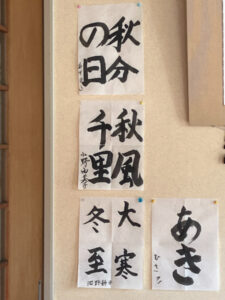 秋分
の日
秋風
千里
大寒
冬至
あき